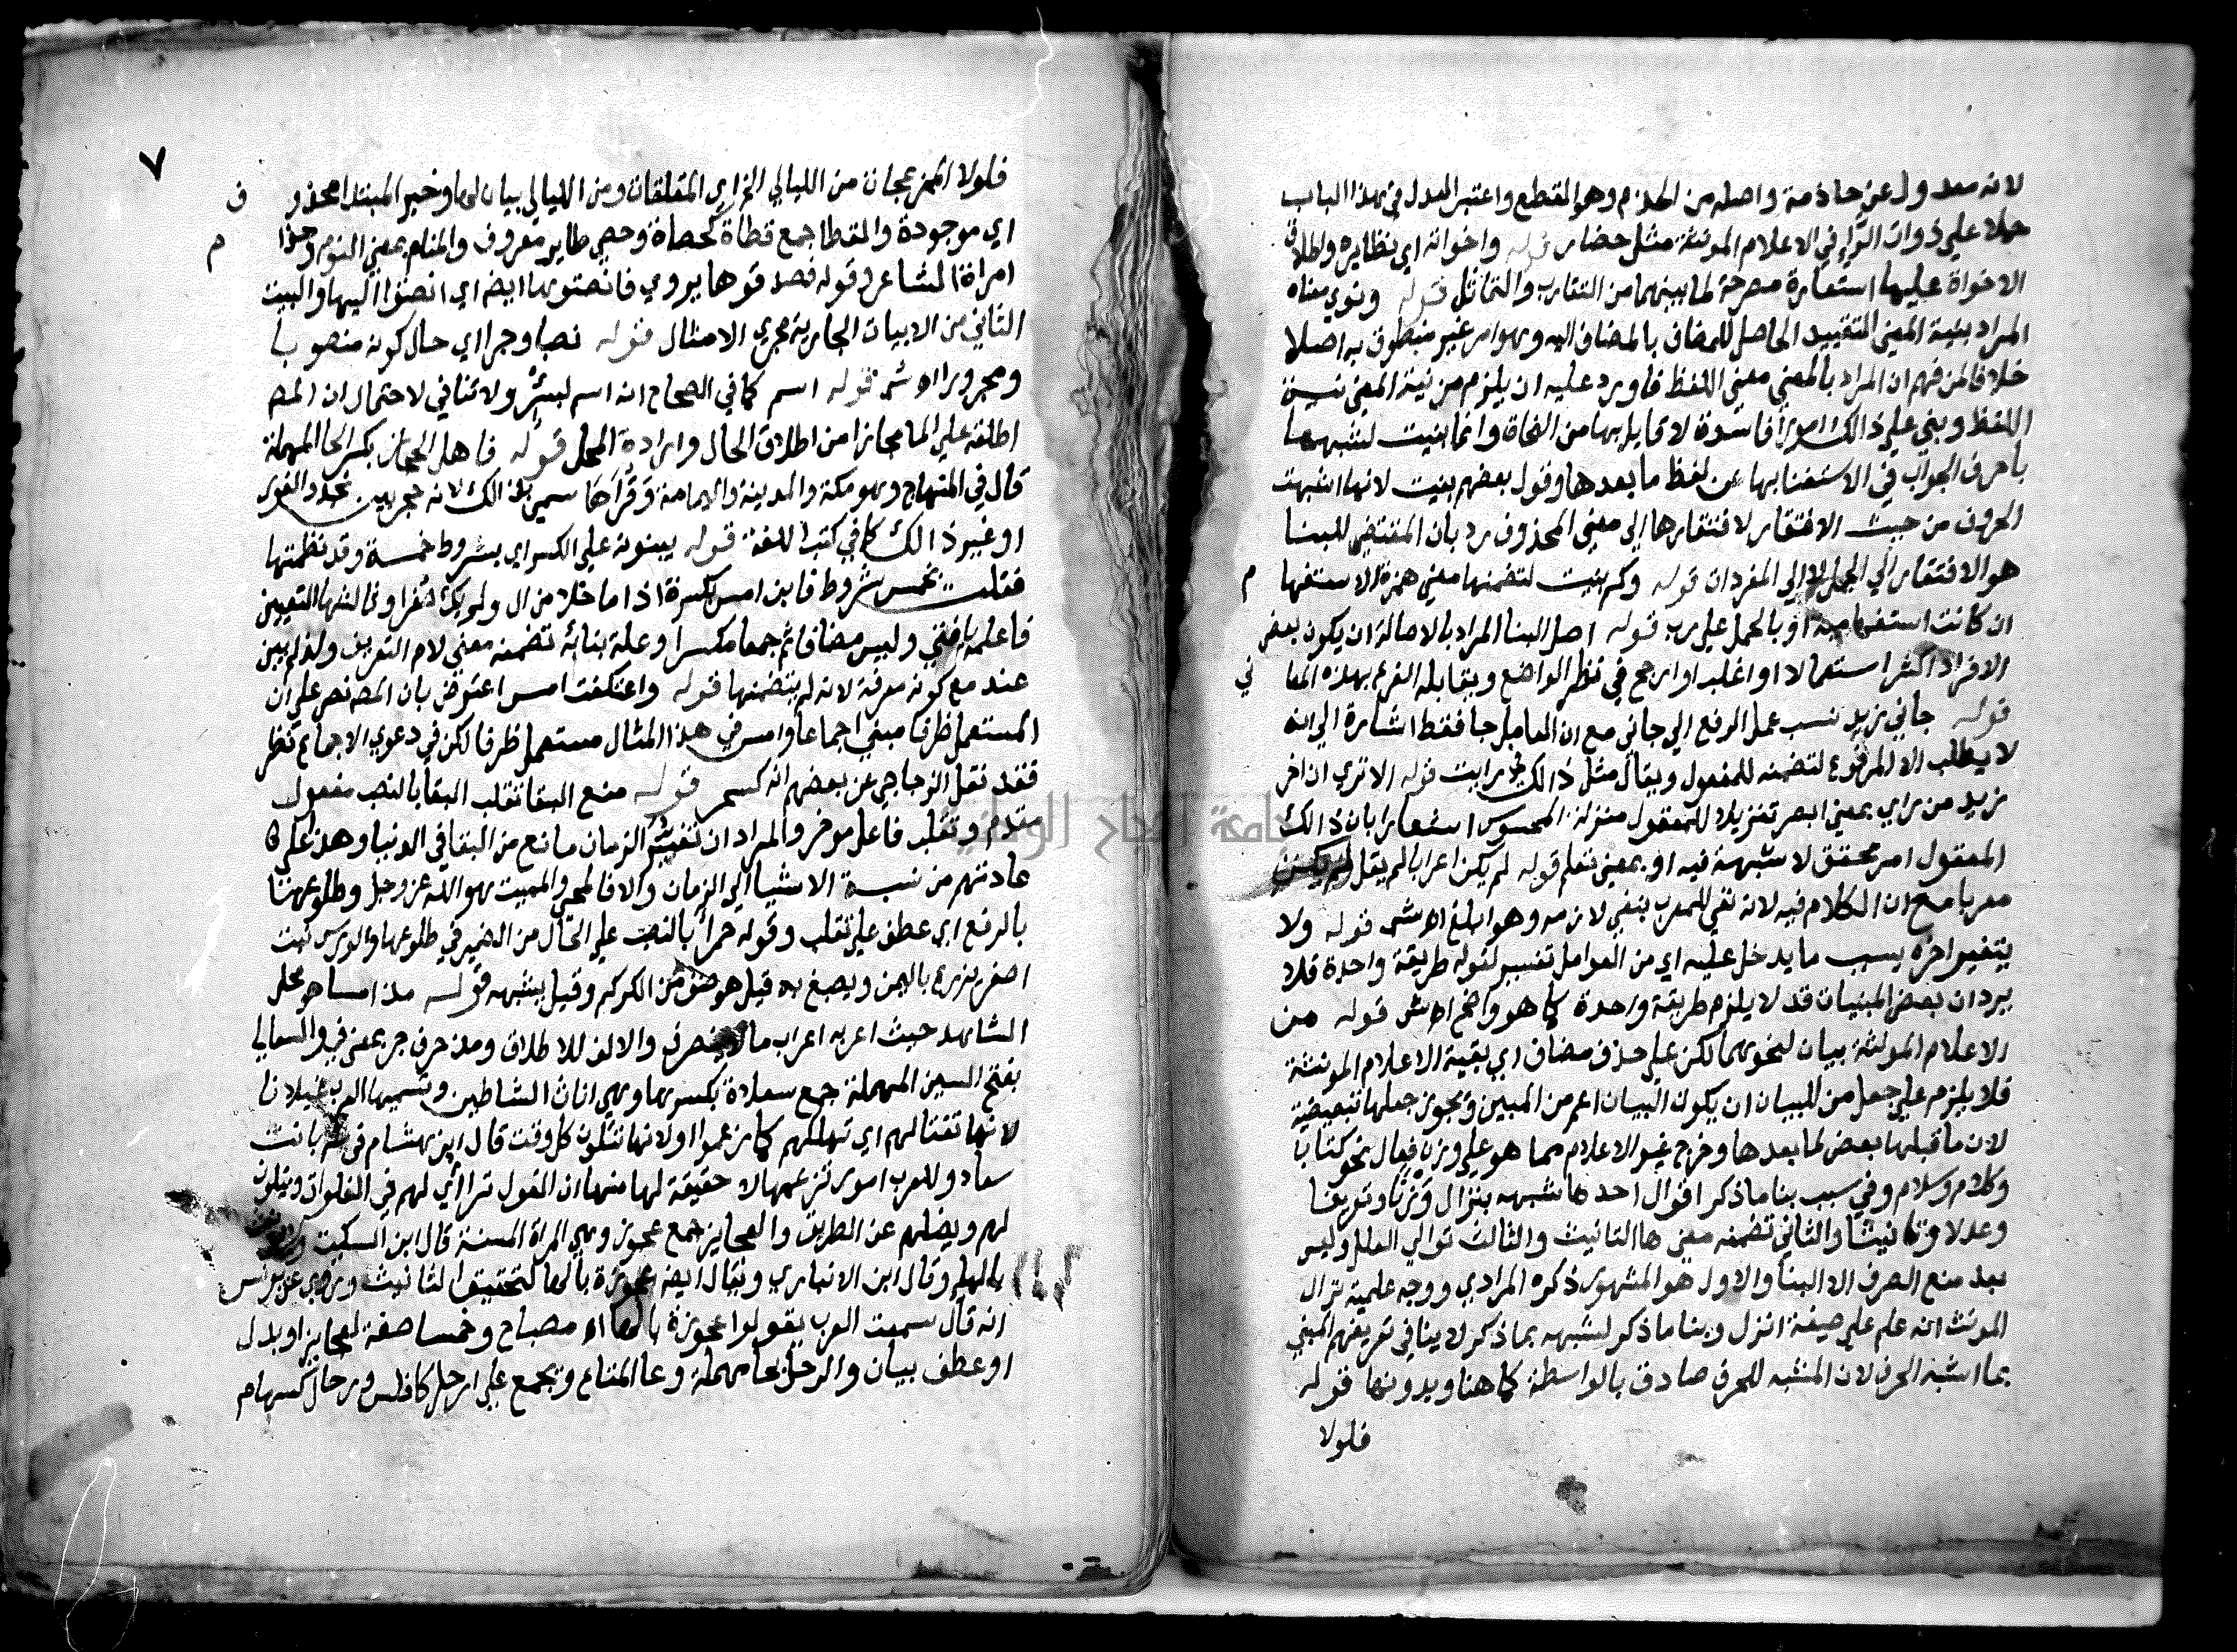 لانه معدول عن حاذمة واصله من الحذم وهو القطع واعتبر العدل في هذا الباب
حملا علي ذوات الراء في الاعلام المونثة مثل حضار قوله واخواته اي نظايره واطلاق
الاخوة عليها استعارة مصرحة لما بينهما من التقارب والتماثل قوله ونوي معناه
المراد بنية المعني التقييد الحاصل للمضاف بالمضاف اليه وهو امر غير منطوق به اصلا
خلافا لمن فهم ان المراد بالمعني معني اللفظ فاورد عليه ان يلزم من نية المعني نية
اللفظ وبني علي ذالك امورا فاسدة لا قايل بها من النحاة وانما بنيت لشبهها
باحرف الجواب في الاستغنا بها عن لفظ ما بعدها وقول بعضهم بنيت لانها اشبهت
الحروف من حيث الافتقار لافتقارها الي معني المحذوف رد بان المقتضي للبنا
هو الافتقار الي الجمل لا الي المفردات قوله وكم بنيت لتضمنها معني همزة الاستفهام
ان كانت استفهامية او بالحمل علي رب قوله اصل البنا المراد بالاصالة ان يكون بعض
الافراد اكثر استعمالا او اغلب او ارجح في نظر الواضع ويقابله الفرع بهذه المعاني
قوله جاني زيد نسب عمل الرفع الي جاني مع ان العامل جا فقط اشارة الي انه
لا يطلب الا المرفوع لتضمنه للمفعول ويقال مثل ذالك في رايت قوله الا تري ان اخر
زيد من راي بمعني ابصر تنزيلا للمعقول منزلة المحسوس اشعارا بان ذالك
المعقول امر محقق لا شبهة فيه او بمعني تعلم قوله لم يكن اعرابا لم يقل لم يكن
معربا مع ان الكلام فيه لانه نفي للمعرب بنفي لازمه وهو ابلغ اه ش قوله ولا
يتغير اخره بسبب ما يدخل عليه اي من العوامل تفسير لقوله طريقة واحدة فلا
يرد ان بعض المبنيات قد لا يلزم طريقة واحدة كما هو واضح اه ش قوله من
الاعلام المونثة بيان لنحوهما لكن علي حذف مضاف اي بقية الاعلام المونثة
فلا يلزم علي جعل من للبيان ان يكون البيان اعم من المبين ويجوز جعلها تبعيضية
لان ما قبلها بعض لما بعدها وخرج غير الاعلام مما هو علي وزن فعال نحو كتاب
وكلام وسلام وفي سبب بنا ما ذكر اقوال احدها شبهه بنزال وزنا وتعريفا
وعدلا وتانيثا والثاني تضمنه معني ها التانيث والثالث توالي العلل وليس
بعد منع الصرف الا البنا والاول هو المشهور ذكره المرادي ووجه علمية نزال
المونث انه علم علي صيغة انزل وبنا ما ذكر لشبهه بما ذكر لا ينافي تعريفهم المبني
بما اشبه الحرف لان المشبه للحرف صادق بالواسطة كما هنا وبدونها قوله
فلولا
٧
فلولا المزعجات من الليالي الخ اي المقلقات ومن الليالي بيان لها وخبر المبتدا محذوف
اي موجودة والقطا جمع قطاة كحصاة وحصي طاير معروف والمنام بمعني النوم وحذام
امراة الشاعر وقوله فصدقوها يروي فانصتوها ايضه اي انصتوا اليها والبيت
الثاني من الابيات الجارية مجري الامثال قوله نصبا وجرا اي حال كونه منصوبا
ومجرورا اه ش قوله اسم كما في الصحاح انه اسم لبئر ولا تنافي لاحتمال ان المص
اطلقه علي الما مجازا من اطلاق الحال وارادة المحل قوله فاهل الحجاز بكسر الحا المهملة
قال في المنهاج وهو مكة والمدينة واليمامة وقراها سمي بذالك لانه حجز بين نجد والغور
او غير ذالك كما في كتب اللغة قوله يبنونه علي الكسر اي بشروط خمسة وقد نظمتها
فقلت بخمس شروط فابن امس بكسرة اذا ما خلا من ال ولم يك صغرا وثالثها التعيين
فاعلمه يا فتي وليس مضافا ثم جمعا مكسرا وعلة بنائه تضمنه معني لام التعريف ولذا لم يبن
عند مع كونه معرفة لانه لم يتضمنها قوله واعتكفت امس اعترض بان المص نص علي ان
المستعمل ظرفا مبني اجماعا وامس في هذا المثال مستعمل ظرفا لكن في دعوي الاجماع نظر
فقد نقل الزجاجي عن بعضهم انه كسحر قوله منع البقا تقلب البقا بالنصب مفعول
مقدم وتقلب فاعل موخر والمراد ان تغيير الزمان مانع من البقا في الدنيا وهذا علي
عادتهم من نسبة الاشيا الي الزمان والا فالمحي والمميت هو الله عز وجل وطلوعها
بالرفع اي عطف علي تقلب وقوله حمرا بالنصب علي الحال من الضمير في طلوعها والورس نبت
اصفر يزرع باليمن ويصبغ به قيل هو صنف من الكركم وقيل يشبهه قوله مذ امسا هو محل
الشاهد حيث اعربه اعراب مالا ينصرف والالف للاطلاق ومذ حرف جر بمعني في والسعالي
بفتح السين المهملة جمع سعلاة بكسرها وهي اناث الشياطين وتسميها العرب غيلانا
لانها تغتالهم اي تهلكهم كما زعموا او لانها تتلون كل وقت قال ابن هشام في بانت
سعاد وللعرب امور تزعمها لا حقيقة لها منها ان الغول تتراأي لهم في الفلوات وتتلون
لهم وتضلهم عن الطريق والعجايز جمع عجوز وهي المراة المسنة قال ابن السكيت ولا تونث
بالها وقال ابن الانباري ويقال ايضه عجوزة بالها لتحقيق التانيث وروي عن يونس
انه قال سمعت العرب يقولوا عجوزة بالها اه مصباح وخمسا صفة لعجايز او بدل
او عطف بيان والرحل بحا مهملة وعا المتاع ويجمع علي ارحل كافلس ورحال كسهام